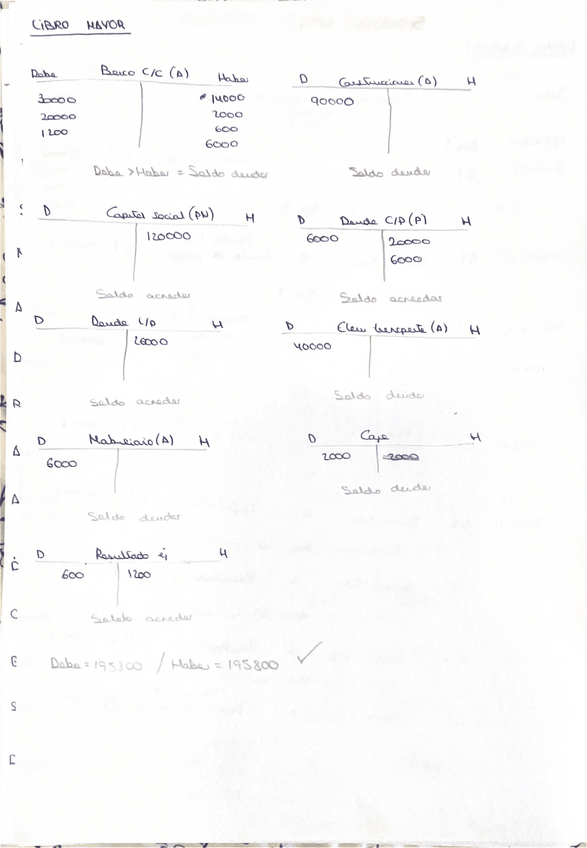 LIBRO MAYOR
Debe Banco C/C (A) Haber
30000 14000
20000 2000
1200 600
6000
Debe > Haber = Saldo deudor
D Construcciones (A) H
90000
Saldo deudor
D Capital social (PN) H
120000
Saldo acreedor
D Deuda C/P (P) H
6000 20000
6000
Saldo acreedor
D Deuda L/P H
26000
Saldo acreedor
D Elem transporte (A) H
40000
Saldo deudor
D Mobiliario (A) H
6000
Saldo deudor
D Caja H
2000 2000
Saldo deudor
D Resultado ej H
600 1200
Saldo acreedor
Debe = 195800 / Haber = 195800 ✓